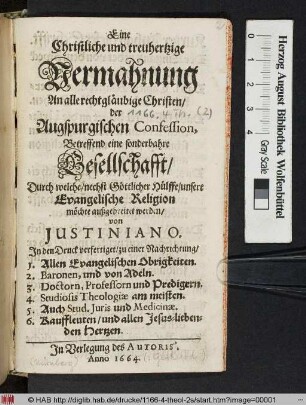 Eine
Christliche und treuhertzige
Vermahnung
An alle rechtgläubige Christen/
der 1166. 4. Th. (2)
Augspurgischen Confession,
Betreffend eine sonderbahre
Gesellschafft/
Durch welche/nechst Göttlicher Hülffe/unsere
Evangelische Religion
möchte außgebreitet werden/
von
JUSTINIANO.
In den Druck verfertiget/zu einer Nachrichtung/
1. Allen Evangelischen Obrigkeiten.
2. Baronen, und von Adeln.
3. Doctorn, Professorn und Predigern.
4. Studiosis Theologiæ am meisten.
5. Auch Stud. Juris und Medicinæ.
6. Kauffleuten/ und allen Jesus-lieben-
den Hertzen.
In Verlegung des AUTORIS.
Anno 1664.
Herzog August Bibliothek Wolfenbüttel
Gray Scale
© HAB http://diglib.hab.de/drucke/1166-4-theol-2s/start.htm?image=00001